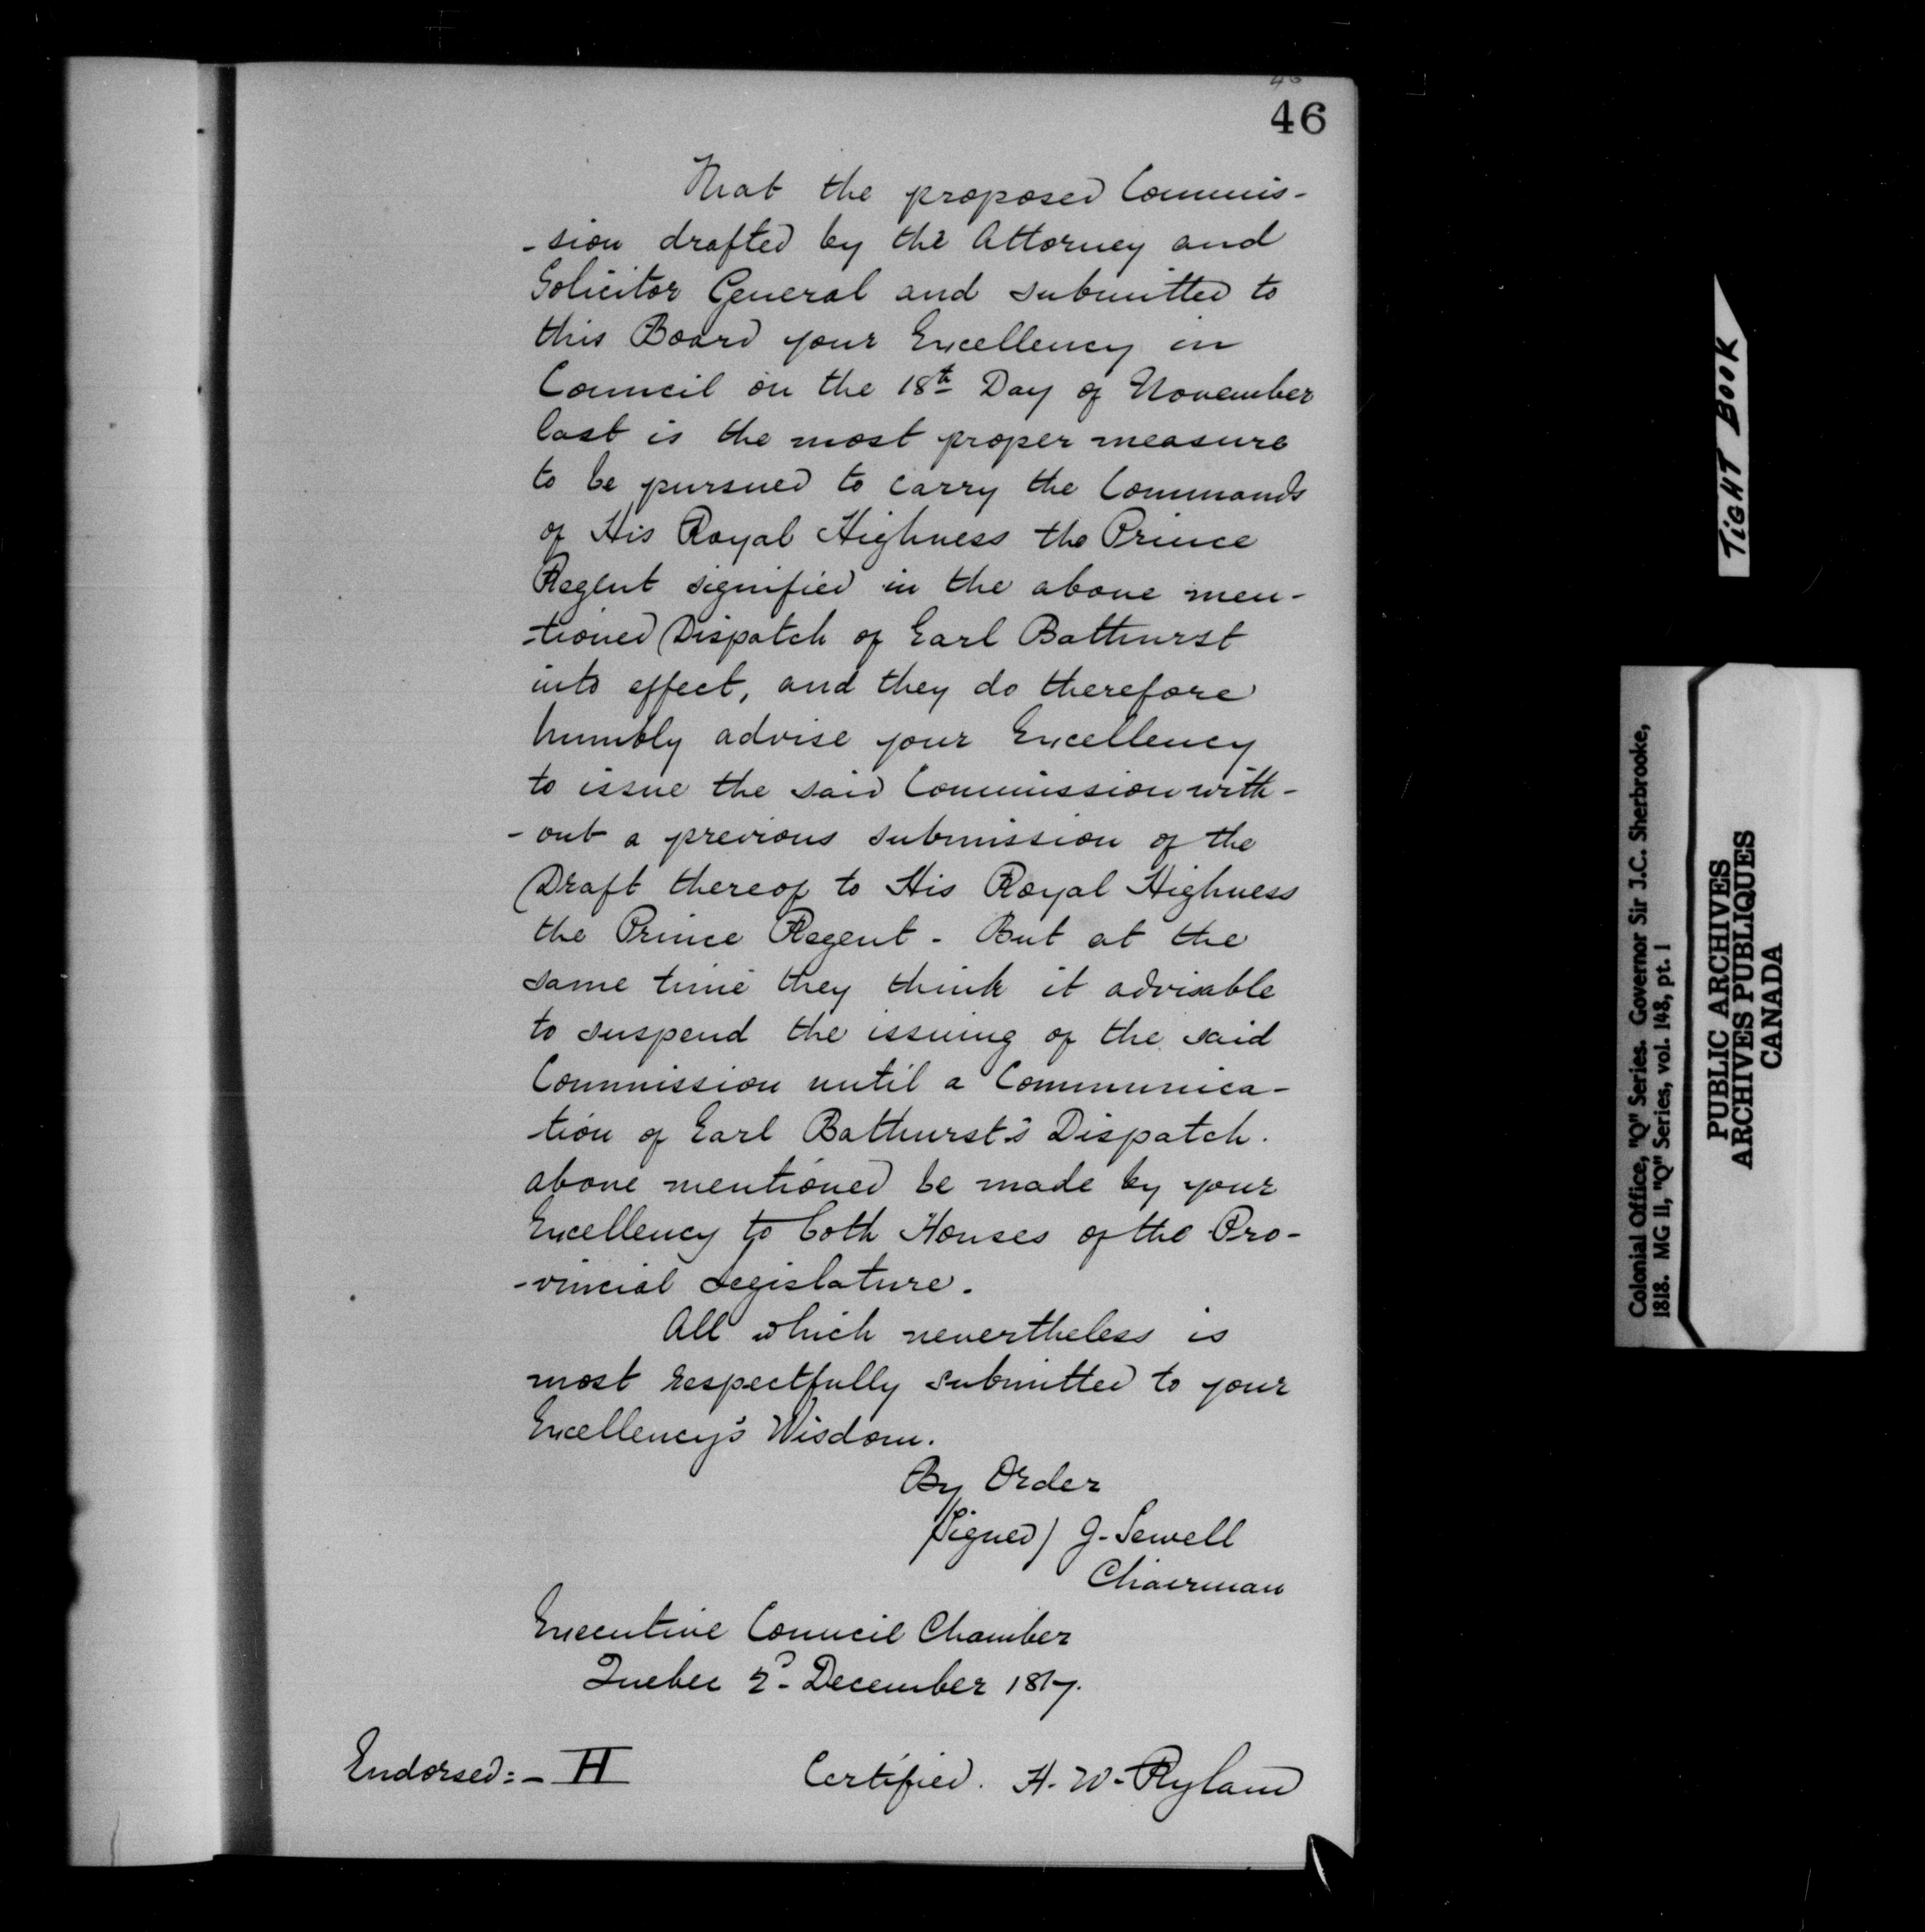 46
That the proposed Commis-
-sion drafted by the Attorney and
Solicitor General and submitted to
this Board your Excellency in
Council on the 18th Day of November
last is the most proper measure
to be pursued to carry the Commands
of His Royal Highness the Prince
Regent signified in the above men-
-tioned Dispatch of Earl Bathurst
into effect, and they do therefore
humbly advise your Excellency
to issue the said Commission with-
-out a previous submission of the
Draft thereof to His Royal Highness
the Prince Regent - But at the
same time they think it advisable
to suspend the issuing of the said
Commission until a Communica-
-tion of Earl Bathurst's Dispatch.
above mentioned be made by your
Excellency to both Houses of the Pro-
-vincial Legislature.
All which nevertheless is
most respectfully submitted to your
Excellency's Wisdom.
By Order
(Signed) J. Sewell
Chairman
Executive Council Chamber
Quebec 2d December 1817.
Endorsed:- H
Certified. H. W. Ryland
TIGHT BOOK
Colonial Office, "Q" Series. Governor Sir J.C. Sherbrooke,
1818. MG 11, "Q" Series, vol. 148, pt. 1
PUBLIC ARCHIVES
ARCHIVES PUBLIQUES
CANADA